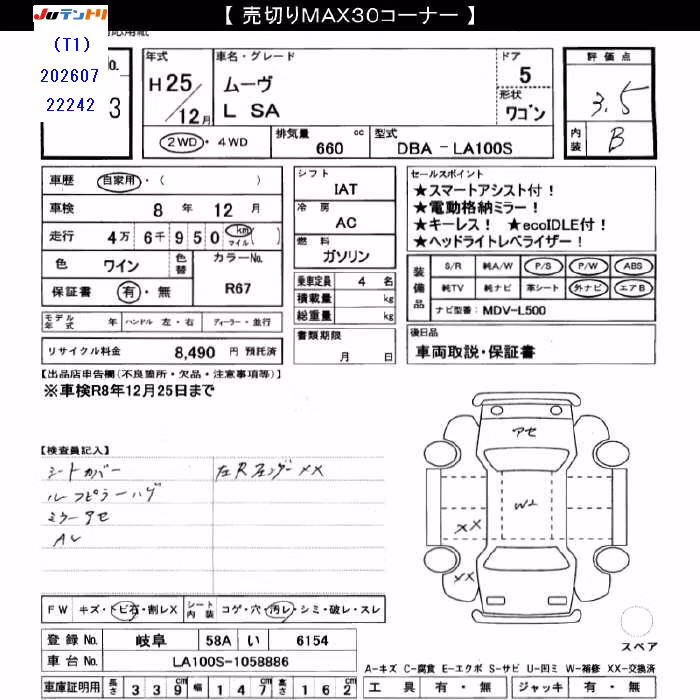 【 売切りMAX30コーナー 】
JUテントリ
(T1)
202607
22242
応用紙
No.
3
年式
H25/12月
車名・グレード
ムーヴ
L SA
ドア
5
形状
ワゴン
評価点
3.5
内装
B
2WD・4WD
排気量 660 cc
型式 DBA - LA100S
車歴 自家用・( )
車検 8年 12月
走行 4万 6千 950 km マイル ( )
色 ワイン 色替
カラーNo. R67
保証書 有・無
モデル年式 年 ハンドル 左・右 ディーラー・並行
リサイクル料金 8,490 円 預託済
シフト
IAT
冷房
AC
燃料
ガソリン
乗車定員 4 名
積載量 kg
総重量 kg
書類期限
月 日
セールスポイント
★スマートアシスト付！
★電動格納ミラー！
★キーレス！ ★ecoIDLE付！
★ヘッドライトレベライザー！
装備品
S/R 純A/W P/S P/W ABS
純TV 純ナビ 革シート 外ナビ エアB
ナビ型番： MDV-L500
後日品
車両取説・保証書
【出品店申告欄(不良箇所・欠品・注意事項等)】
※車検R8年12月25日まで
【検査員記入】
シートカバー
左Rフェンダー××
ルーフピラーハゲ
ミラーアセ
アセ
W2
XX
XX
FW キズ・トビ石・割レX
シート内装 コゲ・穴・汚レ・シミ・破レ・スレ
登録No. 岐阜 58A い 6154
車台No. LA100S-1058886
車庫証明用 長さ 339cm 幅 147cm 高さ 162cm
スペア
A-キズ C-腐食 E-エクボ S-サビ U-凹ミ W-補修 XX-交換済
工具 有・無 ジャッキ 有・無